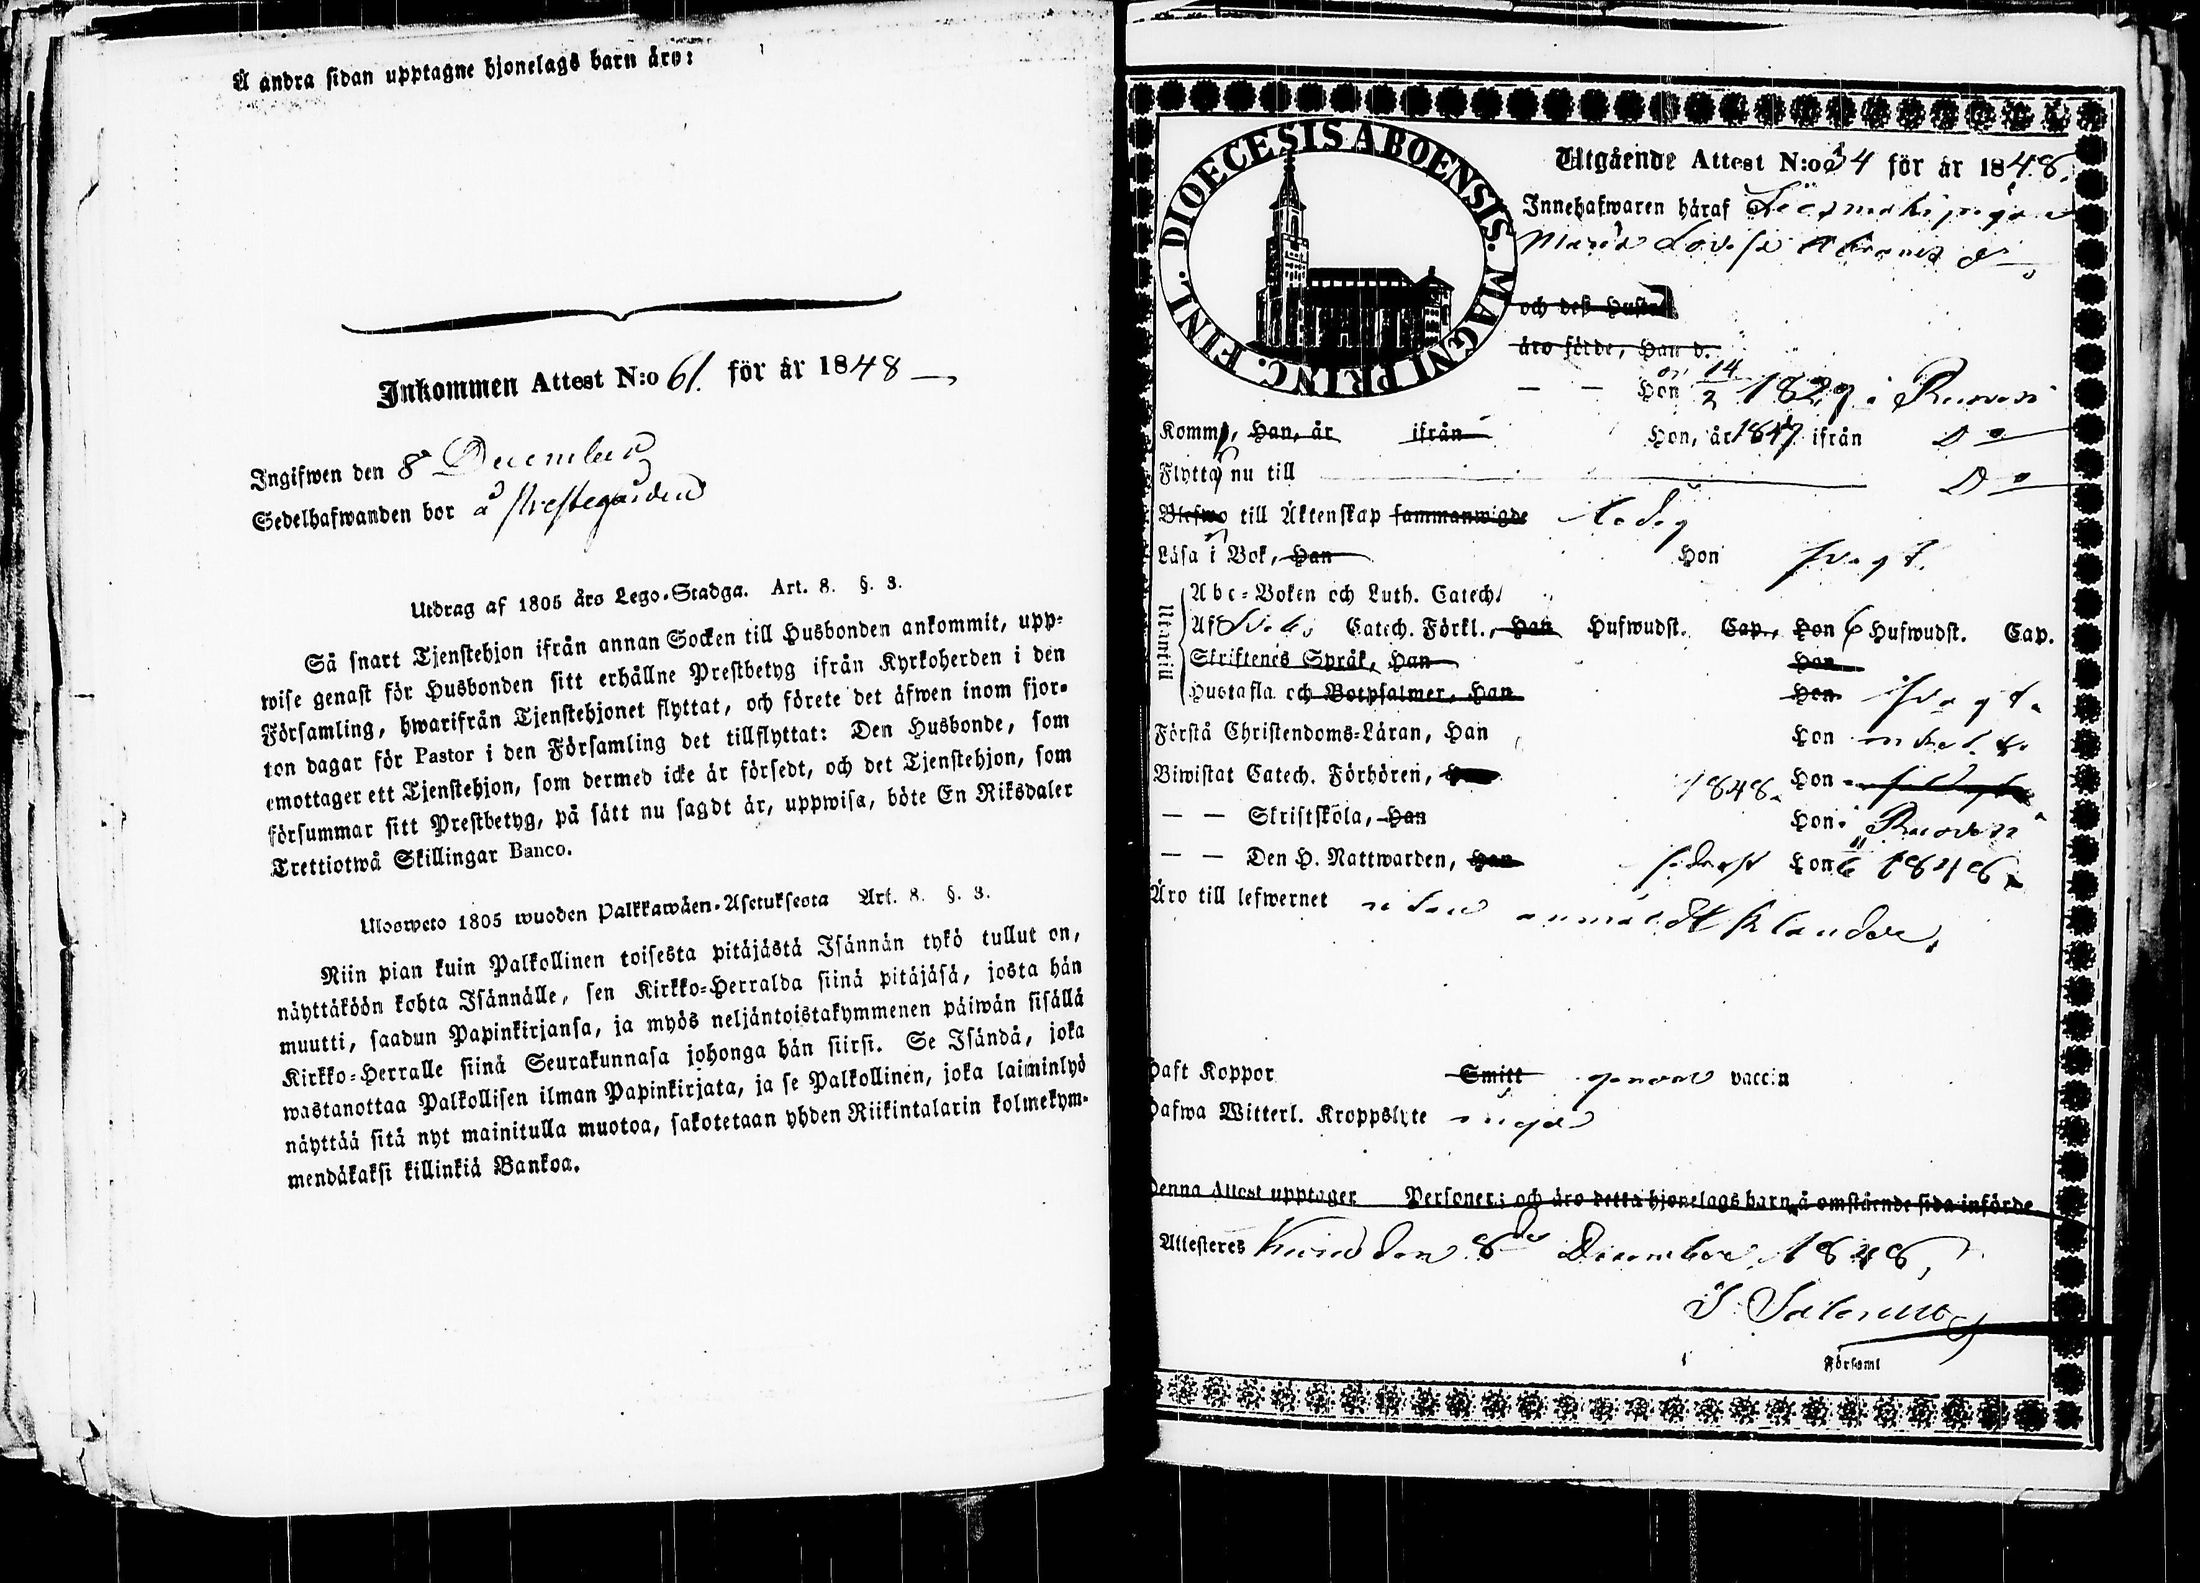 Å andra sidan upptagne hjonelags barn äro:
Inkommen Attest N:o 61. för år 1848
Ingifwen den 8 December
Sedelhafwanden bor å Prestegården
Utdrag af 1805 års Lego-Stadga. Art. 8. §. 3.
Så snart Tjenstehjon ifrån annan Socken till Husbonden ankommit, upp-
wise genast för Husbonden sitt erhållne Prestbetyg ifrån Kyrkoherden i den
Församling, hwarifrån Tjenstehjonet flyttat, och förete det äfwen inom fjor-
ton dagar för Pastor i den Församling det tillflyttat: Den Husbonde, som
emottager ett Tjenstehjon, som dermed icke är försedt, och det Tjenstehjon, som
försummar sitt Prestbetyg, på sätt nu sagdt är, uppwisa, böte En Riksdaler
Trettiotwå Skillingar Banco.
Ulosweto 1805 wuoden Palkkawäen-Asetuksesta Art. 8. §. 3.
Niin pian kuin Palkollinen toisesta pitäjästä Isännän tykö tullut on,
näyttäköön kohta Isännälle, sen Kirkko-Herralda siinä pitäjäsä, josta hän
muutti, saadun Papinkirjansa, ja myös neljäntoistakymmenen päiwän sisällä
Kirkko-Herralle siinä Seurakunnasa johonga hän siirsi. Se Isändä, joka
wastanottaa Palkollisen ilman Papinkirjata, ja se Palkollinen, joka laiminlyö
näyttää sitä nyt mainitulla muotoa, sakotetaan yhden Riikintalarin kolmekym-
mendäkaksi killinkiä Bankoa.
DIOECESIS ABOENSIS. MAGNI PRINC. FINL.
Utgående Attest N:o 34 för år 1848.
Innehafwaren häraf
Maria Lovisa
och deß Hustru
äro födde, Han d.
— — Hon 14/2 1829 i Rusko
Komm, Han, år ifrån Hon, år 1847 ifrån Do
Flytta nu till Do
Blefwo till Äktenskap sammanwigde ledig
Läsa i Bok, Han Hon svagt.
Utantill
Abc-Boken och Luth. Catech.
Af Catech. Förkl., Han Hufwudst. Cap., Hon 6 Hufwudst. Cap.
Skriftenes Språk, Han Hon
Hustafla och Botpsalmer, Han Hon svagt.
Förstå Christendoms-Läran, Han Hon
Biwistat Catech. Förhören, Han 1848. Hon
— — Skriftskola, Han Hon i
— — Den H. Nattwarden, Han sednast Hon 1848.
Äro till lefwernet utan anmäldt klander.
Haft Koppor Smitt genom vaccin
Hafwa Witterl. Kroppslyte inga
Denna Attest upptager Personer; och äro detta hjonelags barn å omstående sida införde
Attesteres den 8de December 1848,
Församl